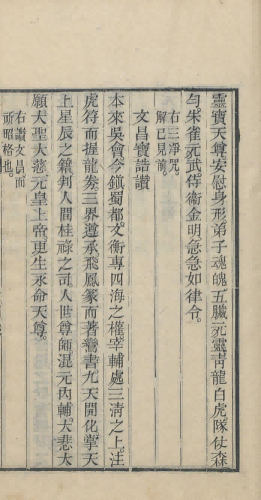 靈寶天尊安慰身形弟子魂魄五臟元靈青龍白虎隊仗森
勻朱雀元武侍衛金明急急如律令
右三淨咒
解已見前
文昌寶誥讚
本來吳會今鎮蜀都文衡專四海之權宰輔處三清之上注
虎符而握龍券三界遵承飛鳳篆而著鸞書九天開化掌天
上星辰之籍判人間桂祿之司人世尊師混元內輔大悲大
願大聖大慈元皇上帝更生永命天尊
右讚文昌而
所昭格也